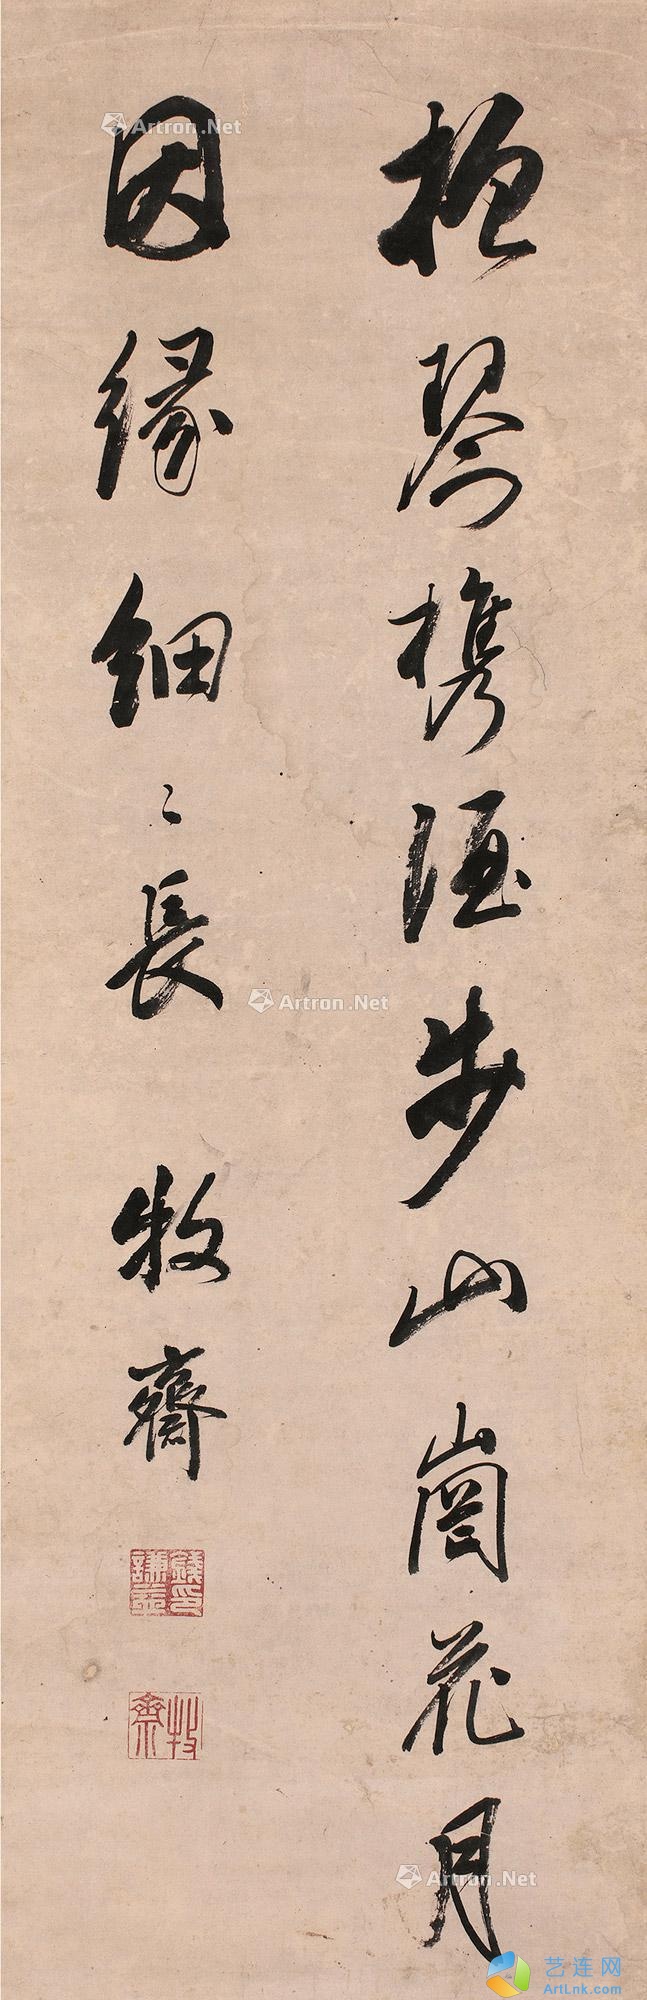 抱琴携酒步山崗花月
因緣細〻長 牧齋
錢謙益印
牧齋
Artron.Net
Artron.Net
Artron.Net
艺连网
ArtLnk.com